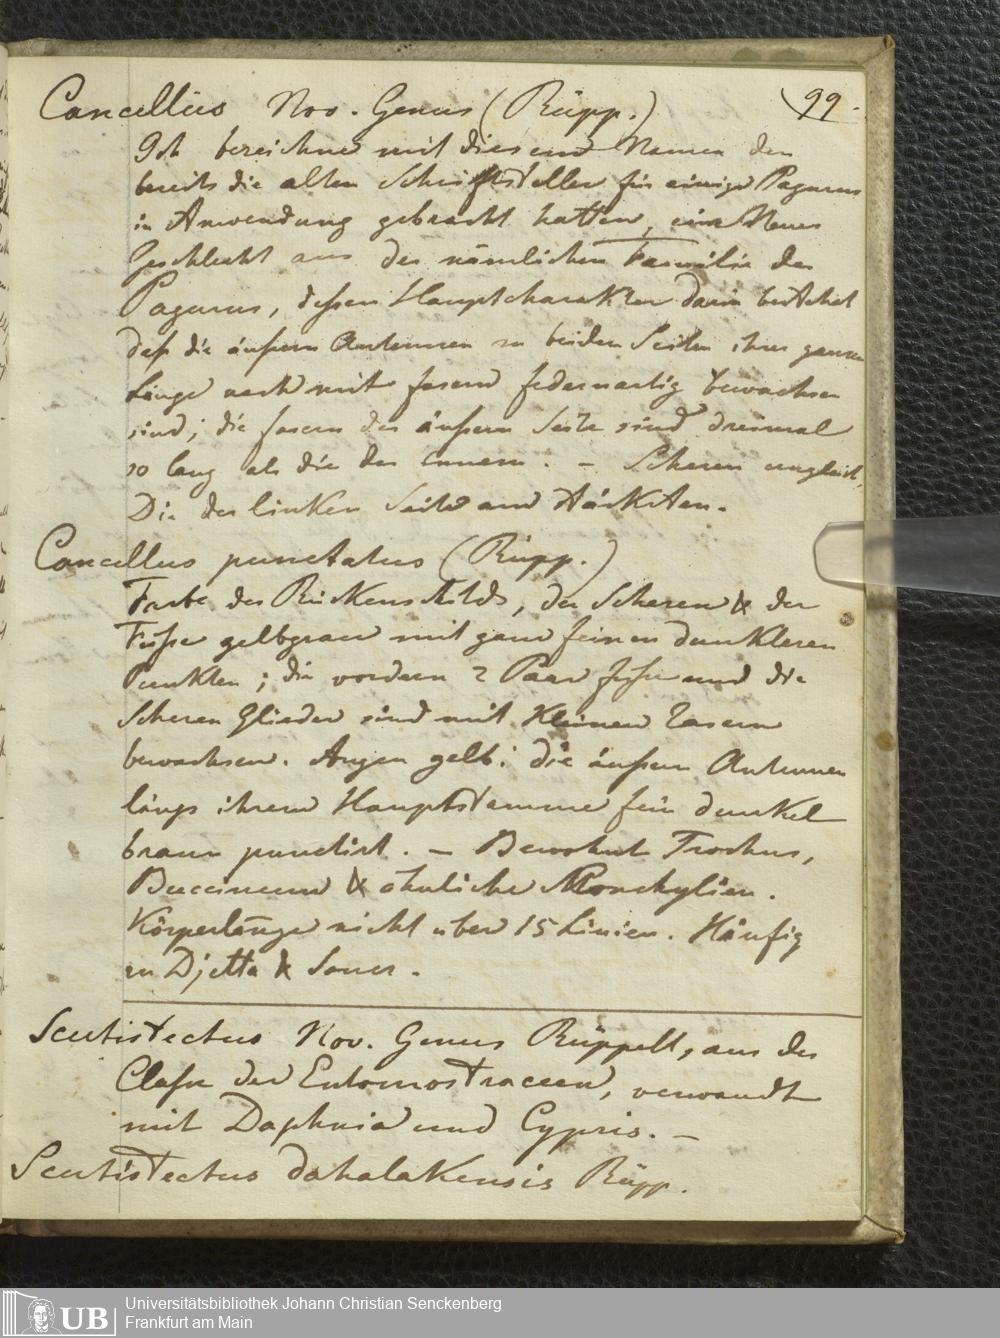 Cancellus Nov. Genus (Rüpp.)
99.
Ich bezeichne mit diesem Namen den
bereits die alten Schriftsteller für einige Pagurus
in Anwendung gebracht hatten, ein Neues
Geschlecht aus der nämlichen Familie der
Pagurus, dessen Hauptcharakter darin bestehet
daß die äußern Antennen zu beiden Seiten ihrer ganzen
Länge nach mit fasern federnartig bewachsen
sind; die fasern der äußern Seite sind dreimal
so lang als die der innern. – Scheren ungleich,
Die der linken Seite am stärksten.
Cancellus punctatus (Rüpp.)
Farbe des Rückenschilds, der Scheren & der
Füße gelbgrau mit ganz feinen dunkleren
Punkten; die vordern 2 Paar füße und die
Scheren Glieder sind mit Kleinen
bewachsen. Augen gelb; die äußern Antennen
längs ihrem Hauptstamme fein dunkel
braun punctirt. – Bewohnt Trochus,
Buccinum & ähnliche Conchylien.
Körperlänge nicht über 15 Linien. Häufig
zu Djetta &
Scutistectus Nov. Genus Rüppell, aus der
Classe der Entomostraceen, verwandt
mit Daphnia und Cypris. –
Scutistectus dahalakensis Rüpp.
UB
Universitätsbibliothek Johann Christian Senckenberg
Frankfurt am Main